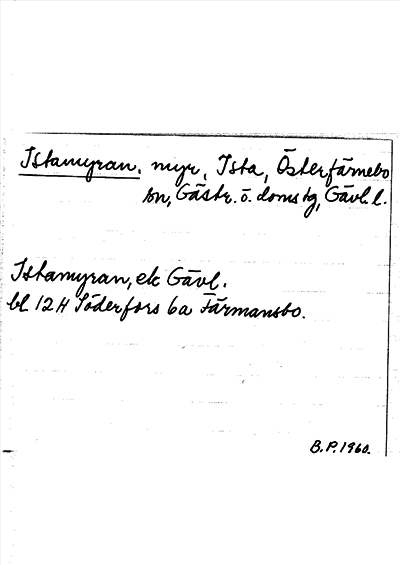 Istamyran, myr, Ista, Österfärnebo
sn, Gästr. ö. domstg, Gävl. l.
Istamyran, ek Gävl.
bl 12H Söderfors 6a Färmansbo.
B.P. 1960.